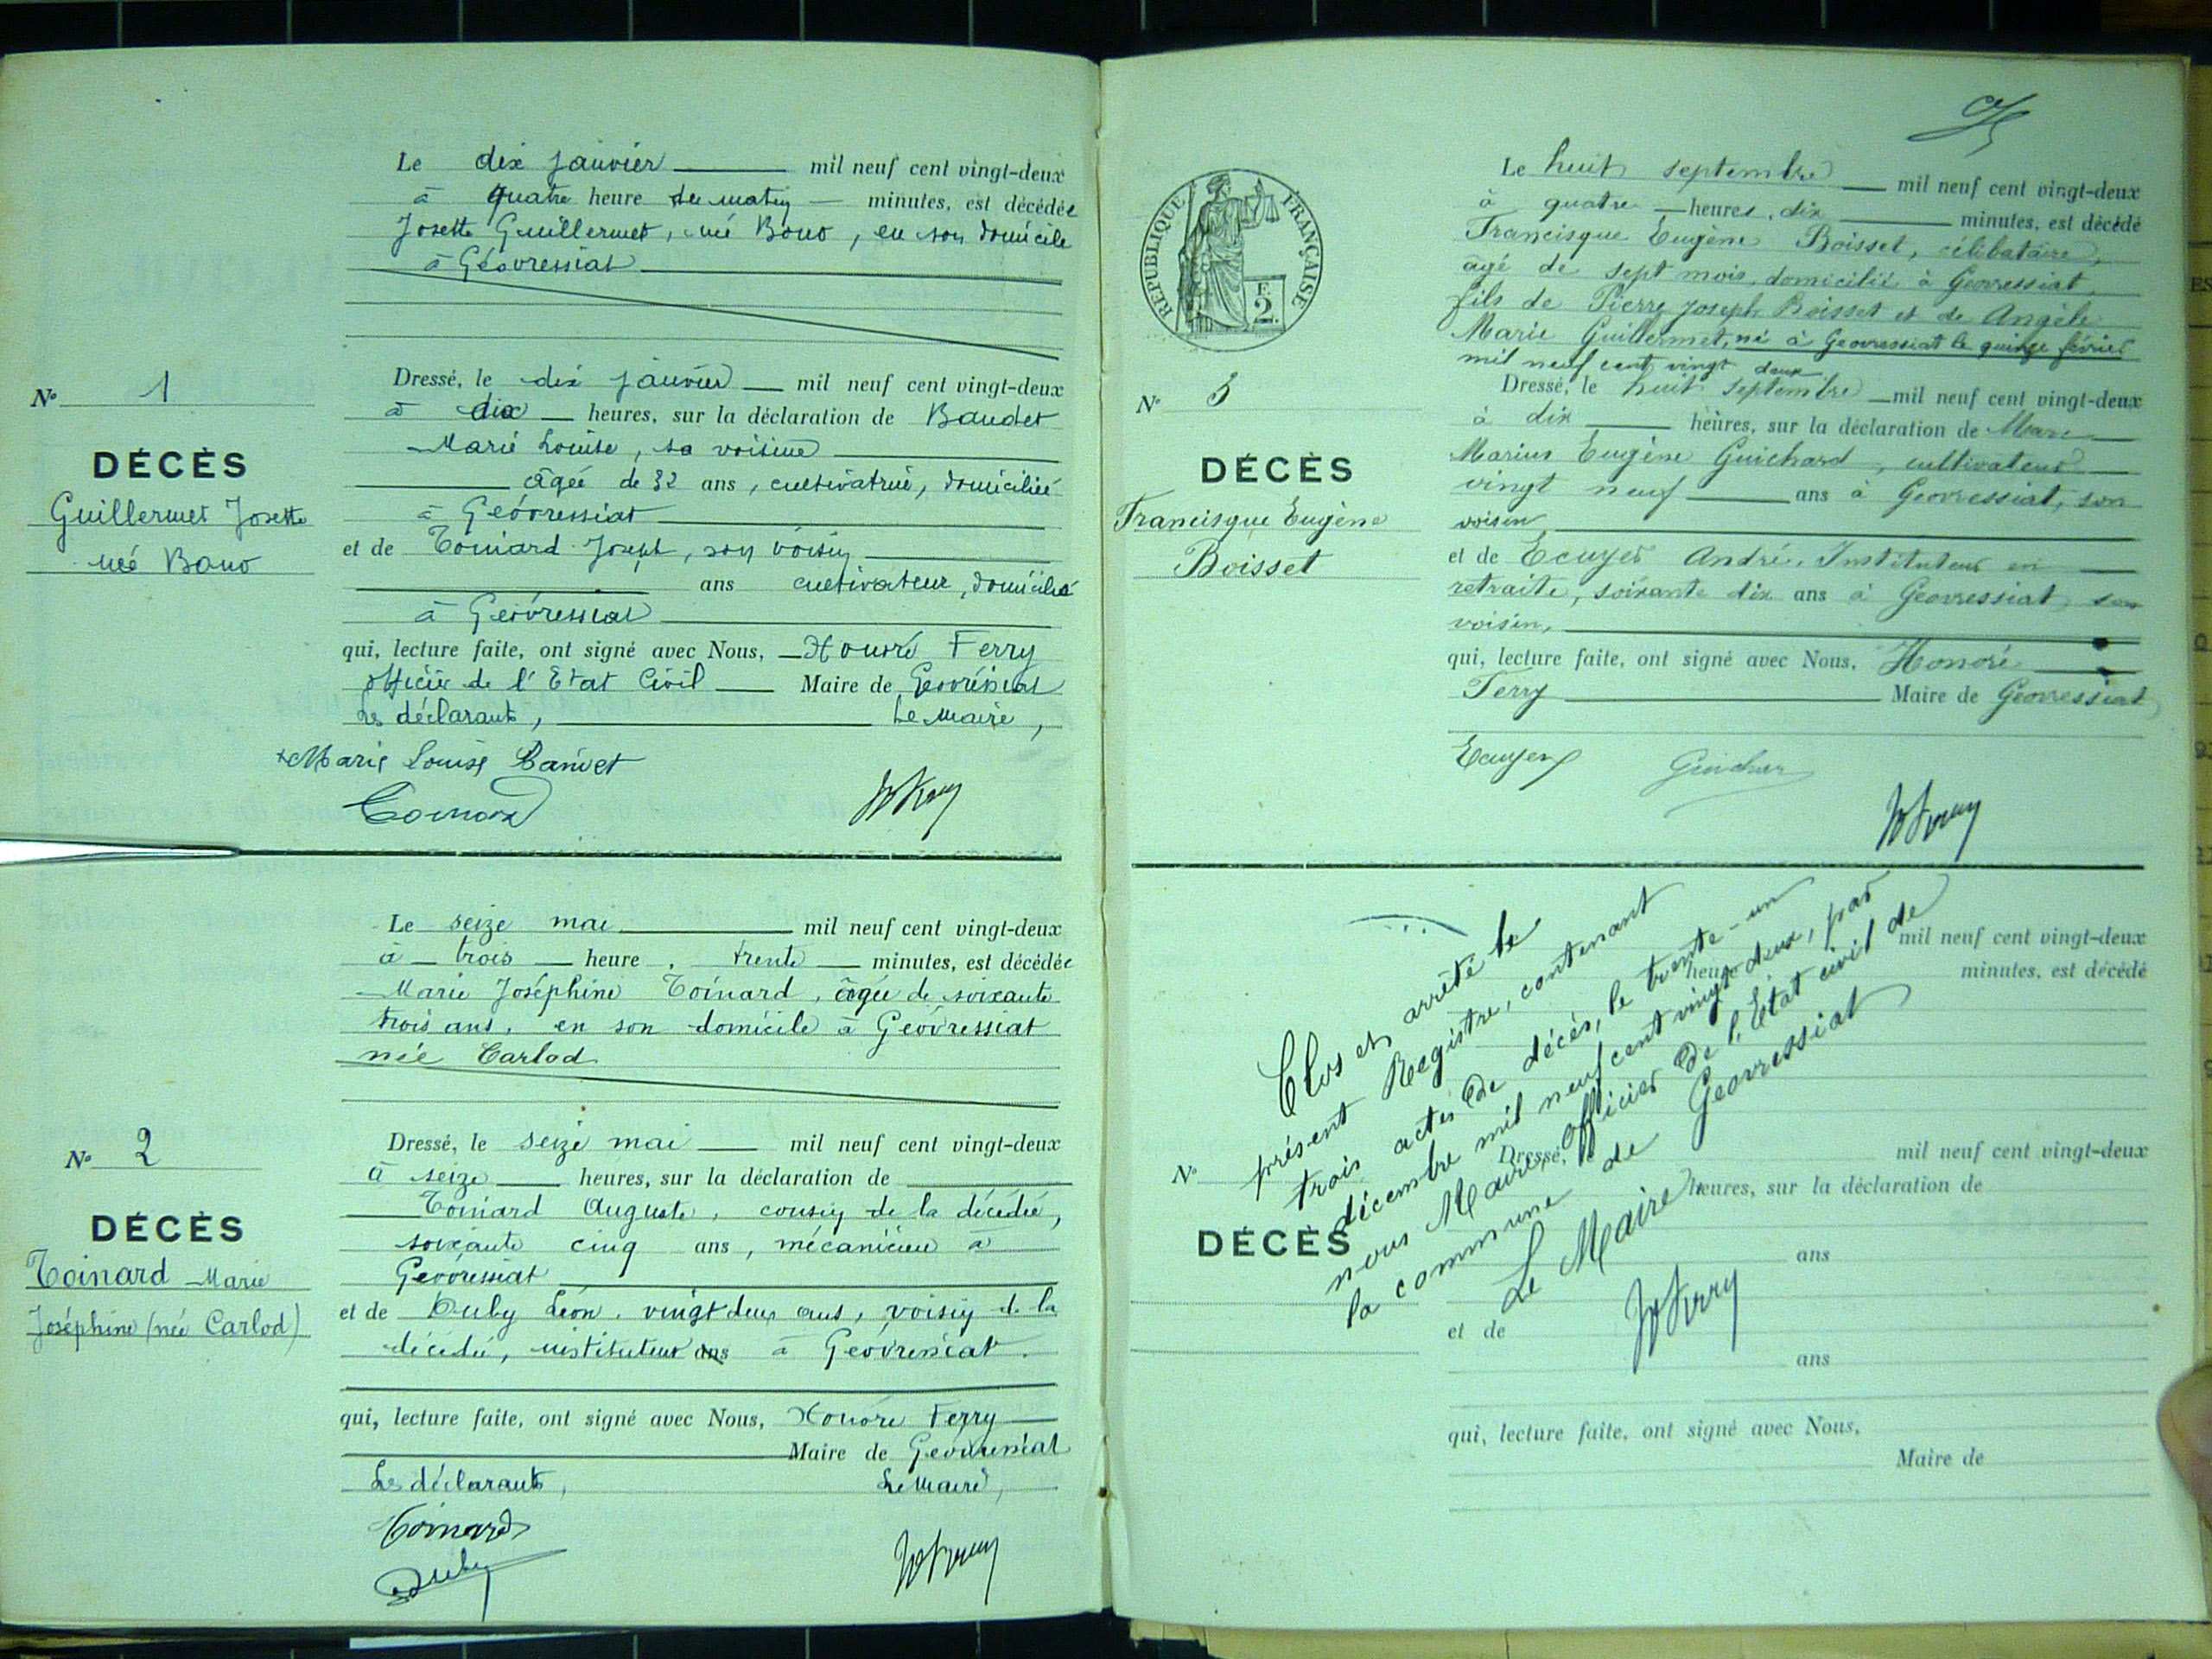 Le dix janvier mil neuf cent vingt-deux
à quatre heure du matin minutes, est décédée
Josette Guillermet, née Bono, en son domicile
à Géovressiat
Dressé, le dix janvier mil neuf cent vingt-deux
à dix heures, sur la déclaration de Baudet
Marie Louise, sa voisine
âgée de 32 ans, cultivatrice, domiciliée
à Géovressiat
et de Toinard Joseph, son voisin
ans cultivateur, domicilié
à Géovressiat
qui, lecture faite, ont signé avec Nous, Honoré Ferry
officier de l'Etat Civil Maire de Géovressiat
Les déclarants, Le Maire,
Marie Louise
Toinard HFerry
Nº 1
DÉCÈS
Guillermet Josette
née Bono
Le seize mai mil neuf cent vingt-deux
à trois heure, trente minutes, est décédée
Marie Joséphine Toinard, âgée de soixante
trois ans, en son domicile à Géovressiat
née Carlod
Dressé, le seize mai mil neuf cent vingt-deux
à seize heures, sur la déclaration de
Toinard Auguste, cousin de la décédée,
soixante cinq ans, mécanicien à
Géovressiat
et de Duby Léon, vingt deux ans, voisin de la
décédée, instituteur ans à Géovressiat.
qui, lecture faite, ont signé avec Nous, Honoré Ferry
Maire de Géovressiat
Les déclarants, Le Maire,
Toinard
Duby HFerry
Nº 2
DÉCÈS
Toinard Marie
Joséphine (née Carlod)
RÉPUBLIQUE FRANÇAISE
F.
2.
Le huit septembre mil neuf cent vingt-deux
à quatre heures, dix minutes, est décédé
Francisque Eugène Boisset, célibataire,
âgé de sept mois, domicilié à Géovressiat,
fils de Pierre Joseph Boisset et de Angèle
Marie Guillermet, né à Géovressiat le quinze février
mil neuf cent vingt deux
Dressé, le huit septembre mil neuf cent vingt-deux
à dix heures, sur la déclaration de
Marius Eugène Guichard, cultivateur
vingt neuf ans à Géovressiat, son
voisin
et de Ecuyer André, Instituteur en
retraite, soixante dix ans à Géovressiat, son
voisin,
qui, lecture faite, ont signé avec Nous, Honoré
Ferry Maire de Géovressiat
Ecuyer Guichard
HFerry
Nº 3
DÉCÈS
Francisque Eugène
Boisset
Clos et arrêté le
présent Registre, contenant
trois actes de décès, le trente-un
décembre mil neuf cent vingt deux, par
nous Maire, Officier de l'Etat civil de
la commune de Géovressiat
Le Maire
HFerry
mil neuf cent vingt-deux
heure minutes, est décédé
Dressé, le mil neuf cent vingt-deux
heures, sur la déclaration de
ans
et de
ans
qui, lecture faite, ont signé avec Nous,
Maire de
Nº
DÉCÈS